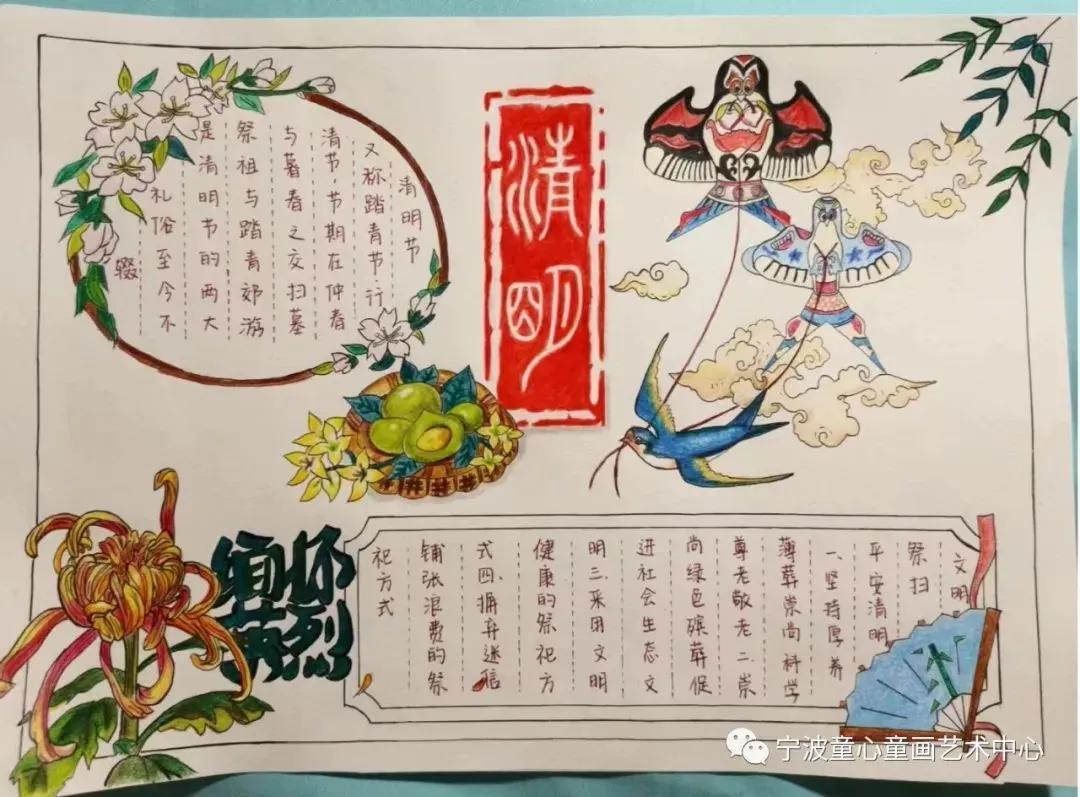 清明
清明节
又称踏青节·行
清节节期在仲春
与暮春之交扫墓
祭祖与踏青郊游
是清明节的两大
礼俗至今不
辍
缅怀
英烈
文明
祭扫
平安清明
一、坚持厚养
薄葬崇尚科学
尊老敬老二、崇
尚绿色殡葬促
进社会生态文
明三、采用文明
健康的祭祀方
式四、摒弃迷信
铺张浪费的祭
祀方式
宁波童心童画艺术中心